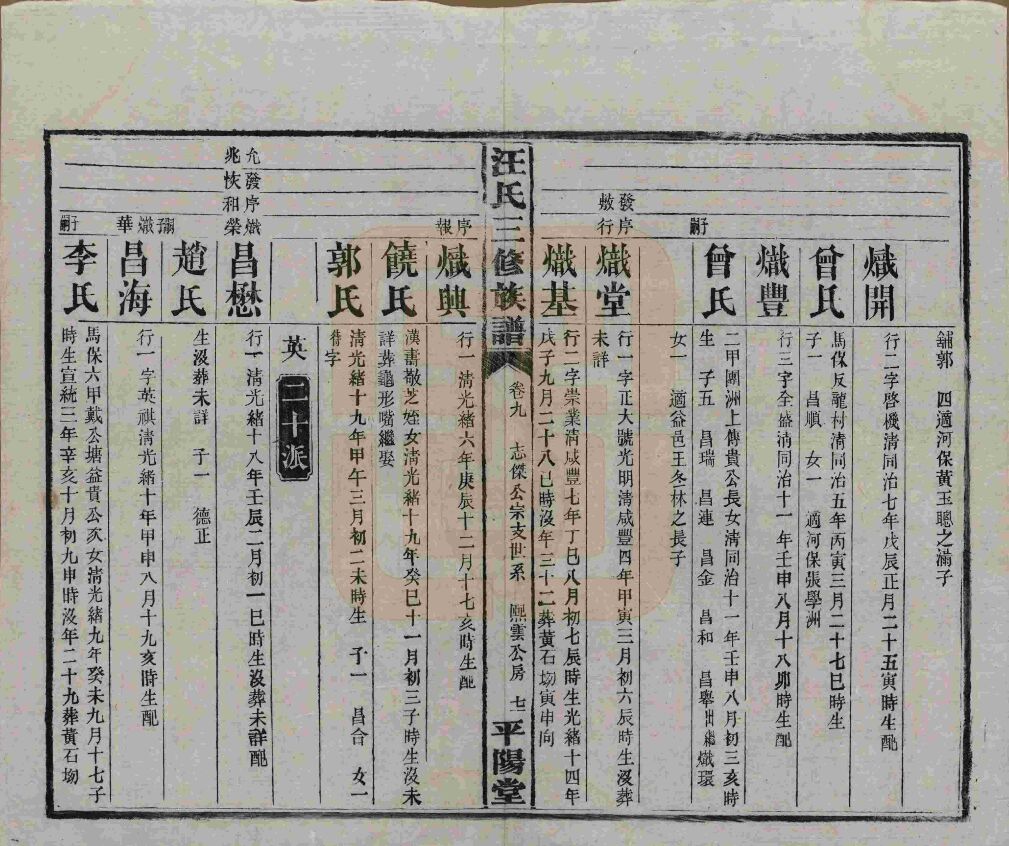 舖郭　四適河保黃玉聰之滿子
熾開
行二字啓機淸同治七年戊辰正月二十五寅時生配
曾氏
馬保反龍村淸同治五年丙寅三月二十七巳時生
子一　昌順　女一　適河保張學洲
熾豐
行三字全盛淸同治十一年壬申八月十八卯時生配
子嗣
曾氏
二甲團洲上傳貴公長女淸同治十一年壬申八月初三亥時
生　子五　昌瑞　昌連　昌金　昌和　昌舉出繼熾環
女一　適益邑王冬林之長子
發序
敷行
熾堂
行一字正大號光明淸咸豐四年甲寅三月初六辰時生沒葬
未詳
熾基
行二字崇業淸咸豐七年丁巳八月初七辰時生光緒十四年
戊子九月二十八巳時沒年三十二葬黃石坳寅申向
汪氏三修族譜
卷九　志傑公宗支世系　熙雲公房　七
平陽堂
序報
熾興
行一淸光緒六年庚辰十二月十七亥時生配
饒氏
漢壽敬芝姪女淸光緒十九年癸巳十一月初三子時生沒未
詳葬龜形嘴繼娶
郭氏
淸光緒十九年甲午三月初二未時生　子一　昌合　女一
待字
英　二十派
允發序熾
兆恢和榮
昌懋
行一淸光緒十八年壬辰二月初一巳時生沒葬未詳配
趙氏
生沒葬未詳　子一　德正
嗣子熾華
昌海
行一字英祺淸光緒十年甲申八月十九亥時生配
子嗣
李氏
馬保六甲戴公塘益貴公次女淸光緒九年癸未九月十七子
時生宣統三年辛亥十月初九申時沒年二十九葬黃石坳